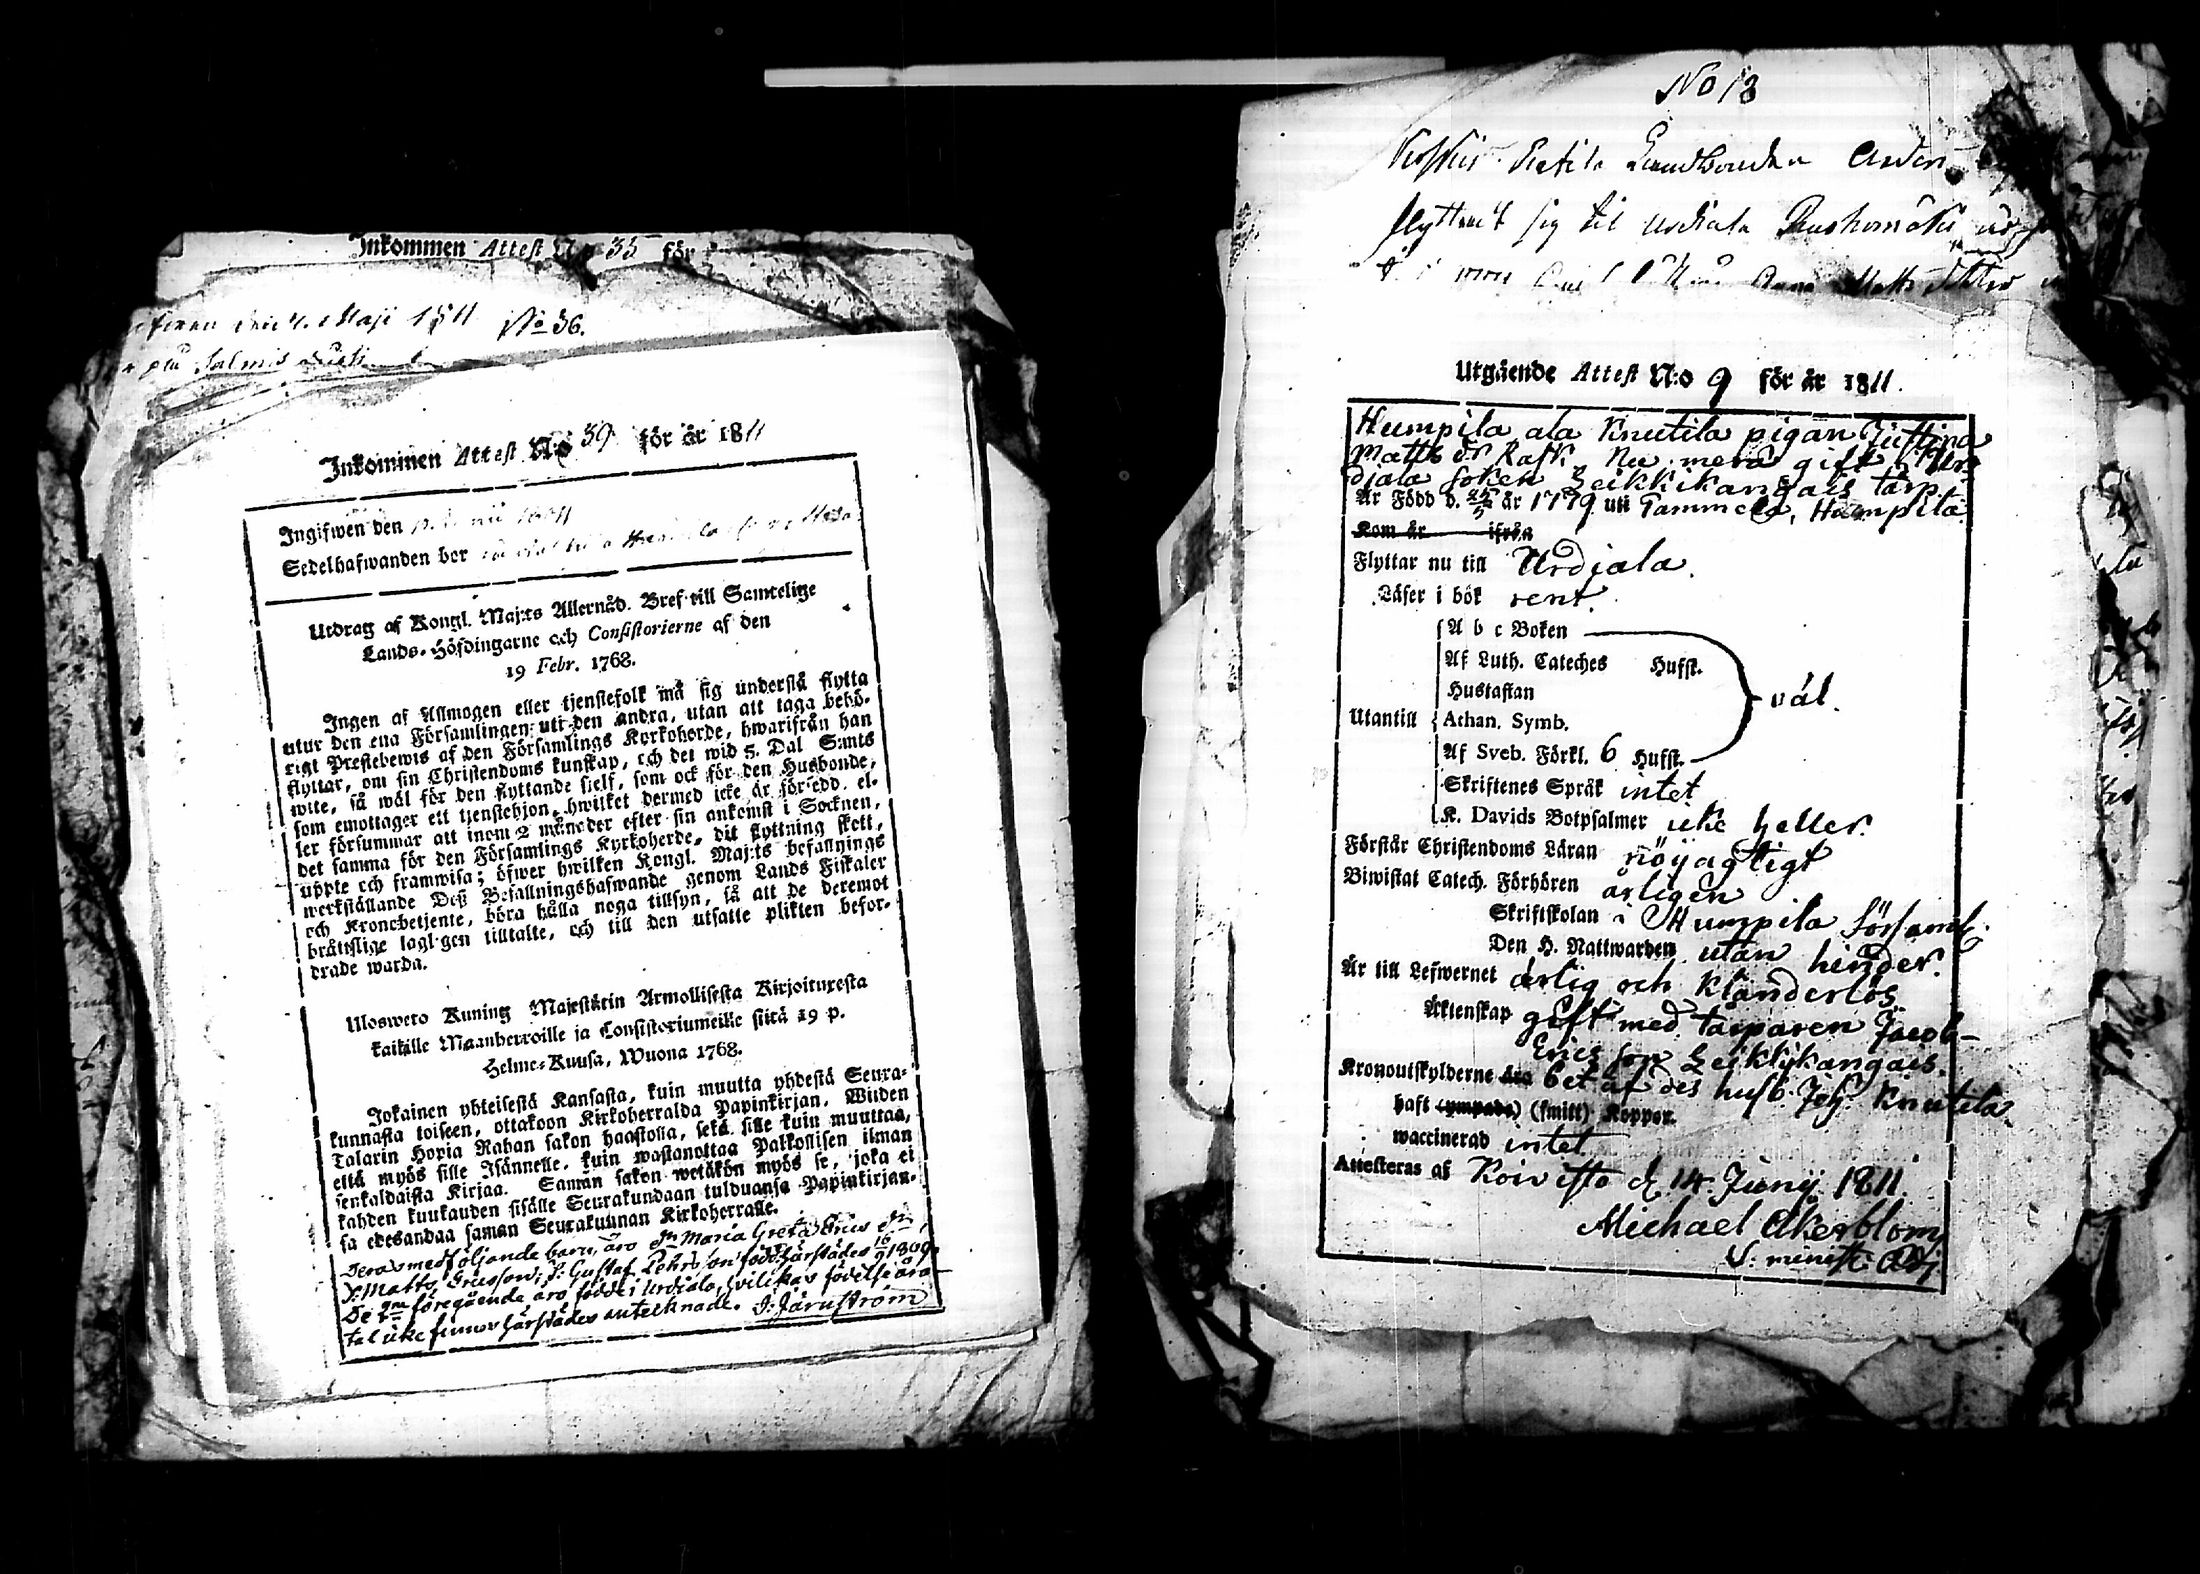 Inkommen Attest No 35 för
den 4. Maji 1811 No 36.
Inkommen Attest N:o 39 för år 1811
Ingifwen den
Sedelhafwanden bor
Utdrag af Kongl. Maj:ts Allernåd. Bref till Samtelige
Lands-Höfdingarne och Consistorierne af den
19 Febr. 1768.
Ingen af Allmogen eller tjenstefolk må sig understå flytta
utur den ena Församlingen uti den andra, utan att taga behö-
rigt Prestebewis af den Församlings Kyrkoherde, hwarifrån han
flyttar, om sin Christendoms kunskap, och det wid 5. Dal S:mts
wite, så wäl för den flyttande sielf, som ock för den Husbonde,
som emottager ett tjenstehjon, hwilket dermed icke är försedd, el-
ler försummar att inom 2 månader efter sin ankomst i Socknen,
det samma för den Församlings Kyrkoherde, dit flyttning skett,
uppte och framwisa; öfwer hwilken Kongl. Maj:ts befallnings
werkställande Deß Befallningshafwande genom Lands Fiskaler
och Kronobetjente, böra hålla noga tillsyn, så att de deremot
bråttslige lagl:gen tilltalte, och till den utsatte plikten befor-
drade warda.
Ulosweto Kuning Majestätin Armollisesta Kirjoituxesta
kaikille Maanherroille ja Consistoriumeille siitä 19 p.
Helme-Kuusa, Wuona 1768.
Jokainen yhteisestä Kansasta, kuin muutta yhdestä Seura-
kunnasta toiseen, ottakoon Kirkoherralda Papinkirjan, Wiiden
Talarin Hopia Rahan sakon haastolla, sekä sille kuin muuttaa,
että myös sille Isännelle, kuin wastanottaa Palkollisen ilman
senkaldaista Kirjaa. Saman sakon wetäkön myös se, joka ei
kahden kuukauden sisälle Seurakundaan tulduansa Papinkirjan-
sa edesandaa saman Seurakunnan Kirkoherralle.
deras medföljande barn, äro Maria Greta Erics dr,
S: Matts Ericsson, S. Gustaf Pehrsson född härstädes 16/9 1809.
De 2ne föregående äro födde i Urdiala, hvilkas födelse åra-
tal icke finnes härstädes antecknade. J: Järnström
No 13
Landbonden
flyttat sig til Urdiala
Utgående Attest N:o 9 för år 1811.
Humpila ala Knutila pigan Justina
Matts dr Rask. Nu mera gift i Ur-
diala soken Leikkikangais tårp
Är Född d. 25/5 år 1779 uti Tammela, Humpila.
Kom år ifrån
Flyttar nu till Urdiala.
Läser i bok rent.
A b c Boken
Af Luth. Cateches Hufst.
Hustaflan
Utantill Athan. Symb. väl.
Af Sveb. Förkl. 6 Hufst.
Skriftenes Språk intet
K. Davids Botpsalmer icke heller.
Förstår Christendoms Läran nöyagtigt
Biwistat Catech. Förhören årligen
Skriftskolan i Humpila församl.
Den H. Nattwarden utan hinder.
Är till Lefwernet ärlig och klanderlös
Äktenskap gift med tårparen Jacob
Erics son Leikkikangais.
Kronoutskylderne äro bet af des husb. Joh. Knutila
haft (ympade) (smitt) Koppor.
waccinerad intet
Attesteras af Koivisto d. 14 Junij 1811.
Michael Åkerblom
V: minist: Adj